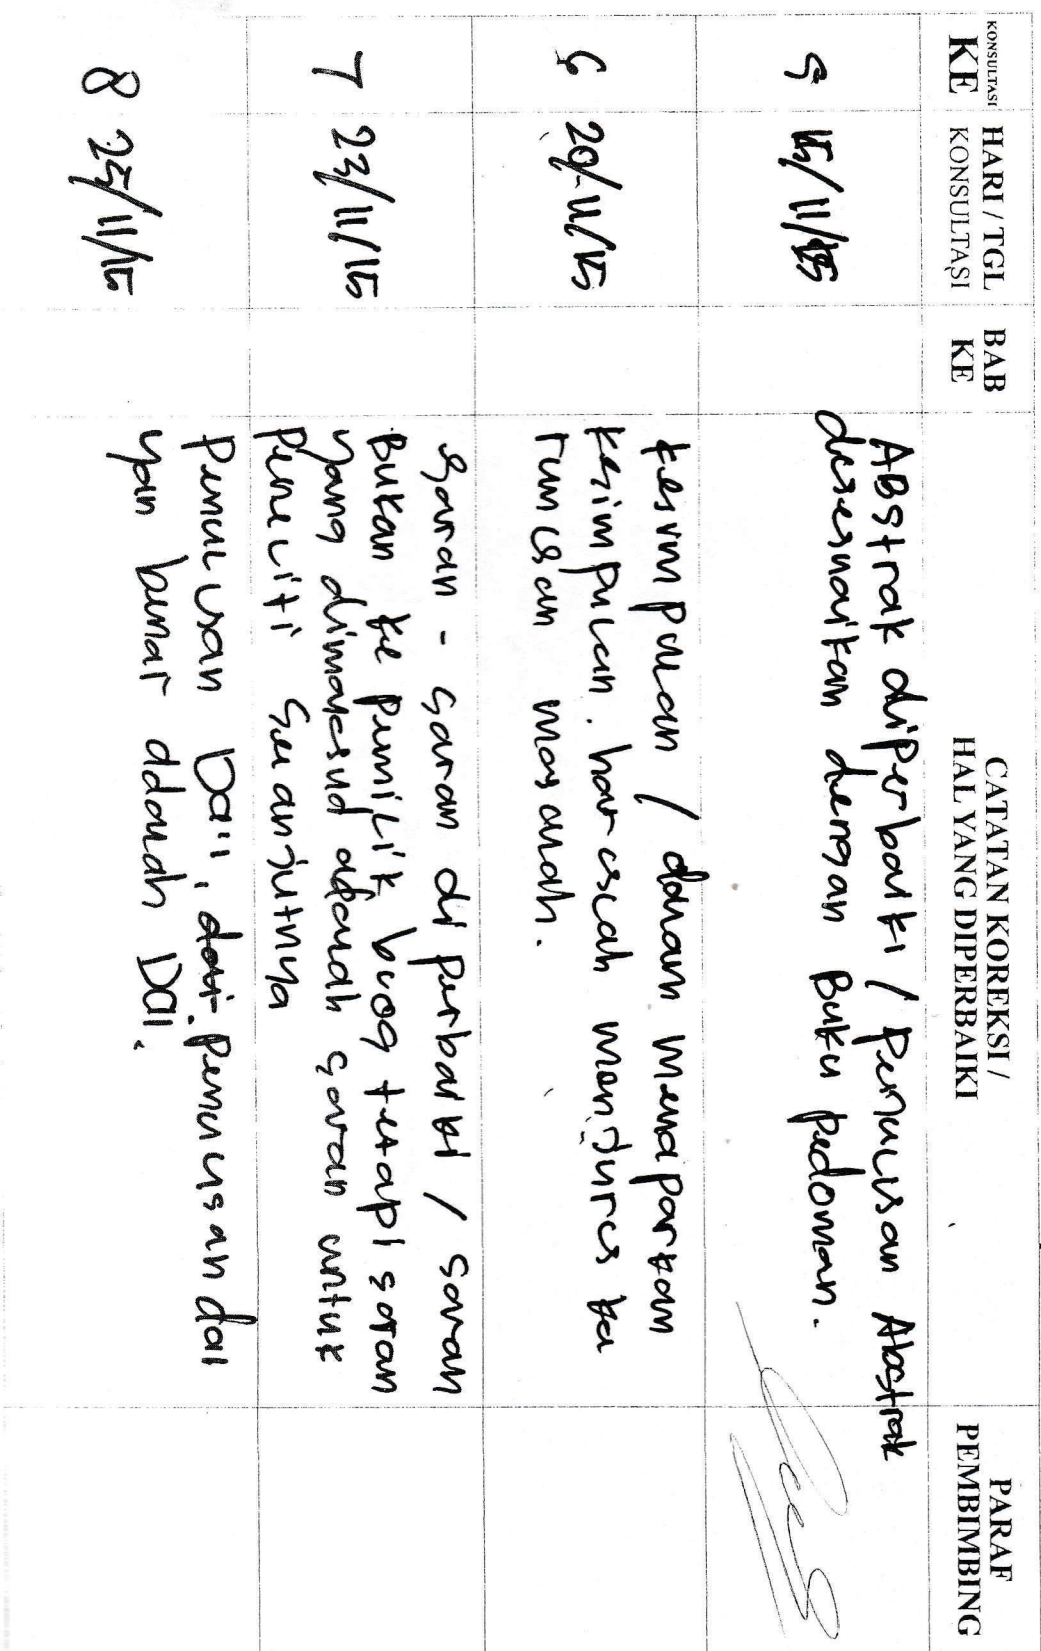 KONSULTASI KE
HARI / TGL KONSULTASI
BAB KE
CATATAN KOREKSI / HAL YANG DIPERBAIKI
PARAF PEMBIMBING
5 15/11/15
ABstrak diperbaiki / Penulisan Abstrak
disesuaikan dengan Buku pedoman.
6 20/11/15
kesimpulan / dalam menaparkan
Kesimpulan. haruslah menjurus ke
rumusan masalah.
7 23/11/15
Saran - Saran di perbaiki / Saran
Bukan ke pemilik blog tetapi saran
yang dimaksud adalah saran untuk
Peneliti Selanjutnya
8 25/11/15
Penulisan Da'i, dari Penulisan dai
yan benar adalah DAi.